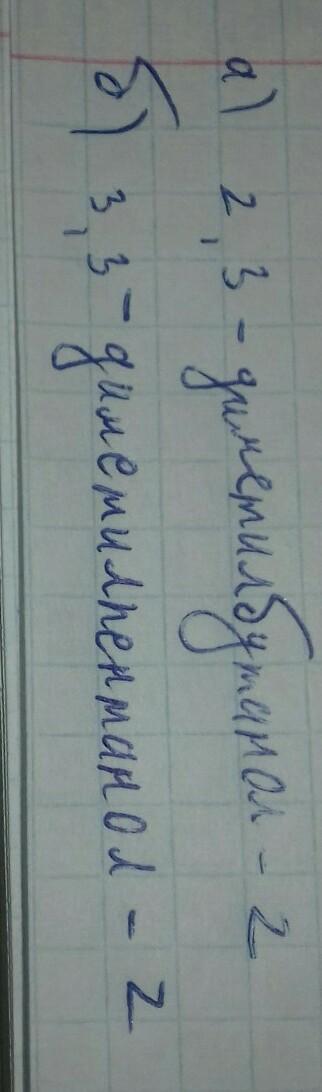 а) 2,3-диметилбутанол-2
б) 3,3-диметилпентанол-2